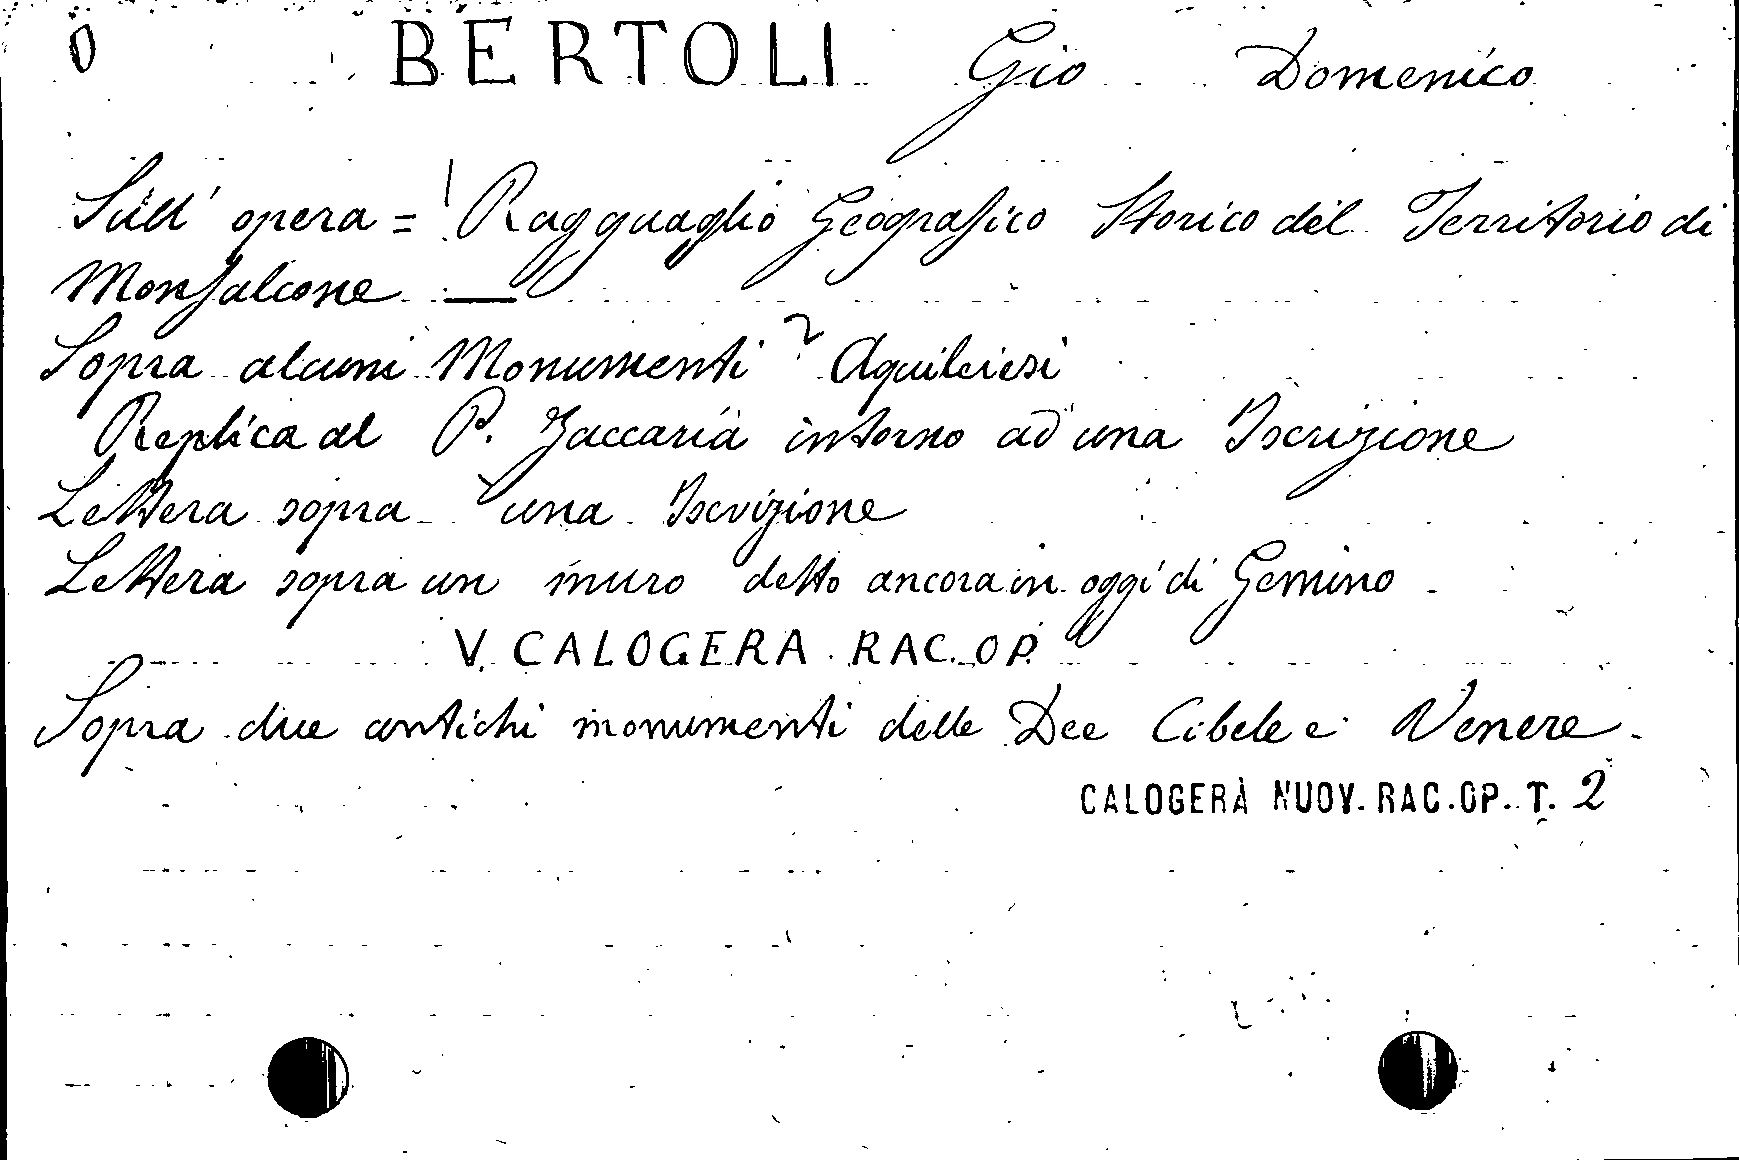 0 BERTOLI Gio Domenico
Sull' opera = Ragguaglio Geografico Storico del Territorio di
Monfalcone —
Sopra alcuni Monumenti Aquileiesi
Replica al P. Zaccaria intorno ad una Iscrizione
Lettera sopra una Iscrizione
Lettera sopra un muro detto ancora in oggi di Gemino
V. CALOGERA. RAC. OP.
Sopra due antichi monumenti delle Dee Cibele e Venere.
CALOGERÀ NUOV. RAC. OP. T. 2